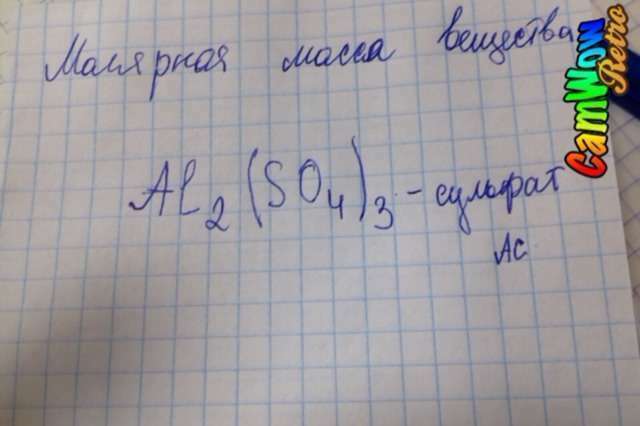 Молярная масса вещества
Al₂(SO₄)₃ - сульфат
Ас
CamWow
Retro